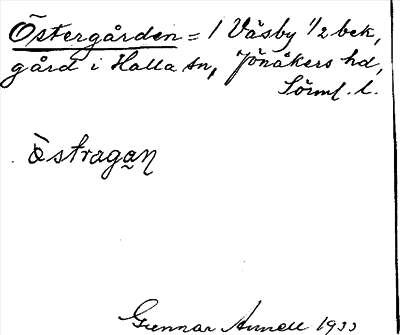 Östergården = 1 Väsby 1/2 bek,
gård i Halla sn, Jönåkers hd,
Sörml. l.
östragan
Gunnar Annell 1933